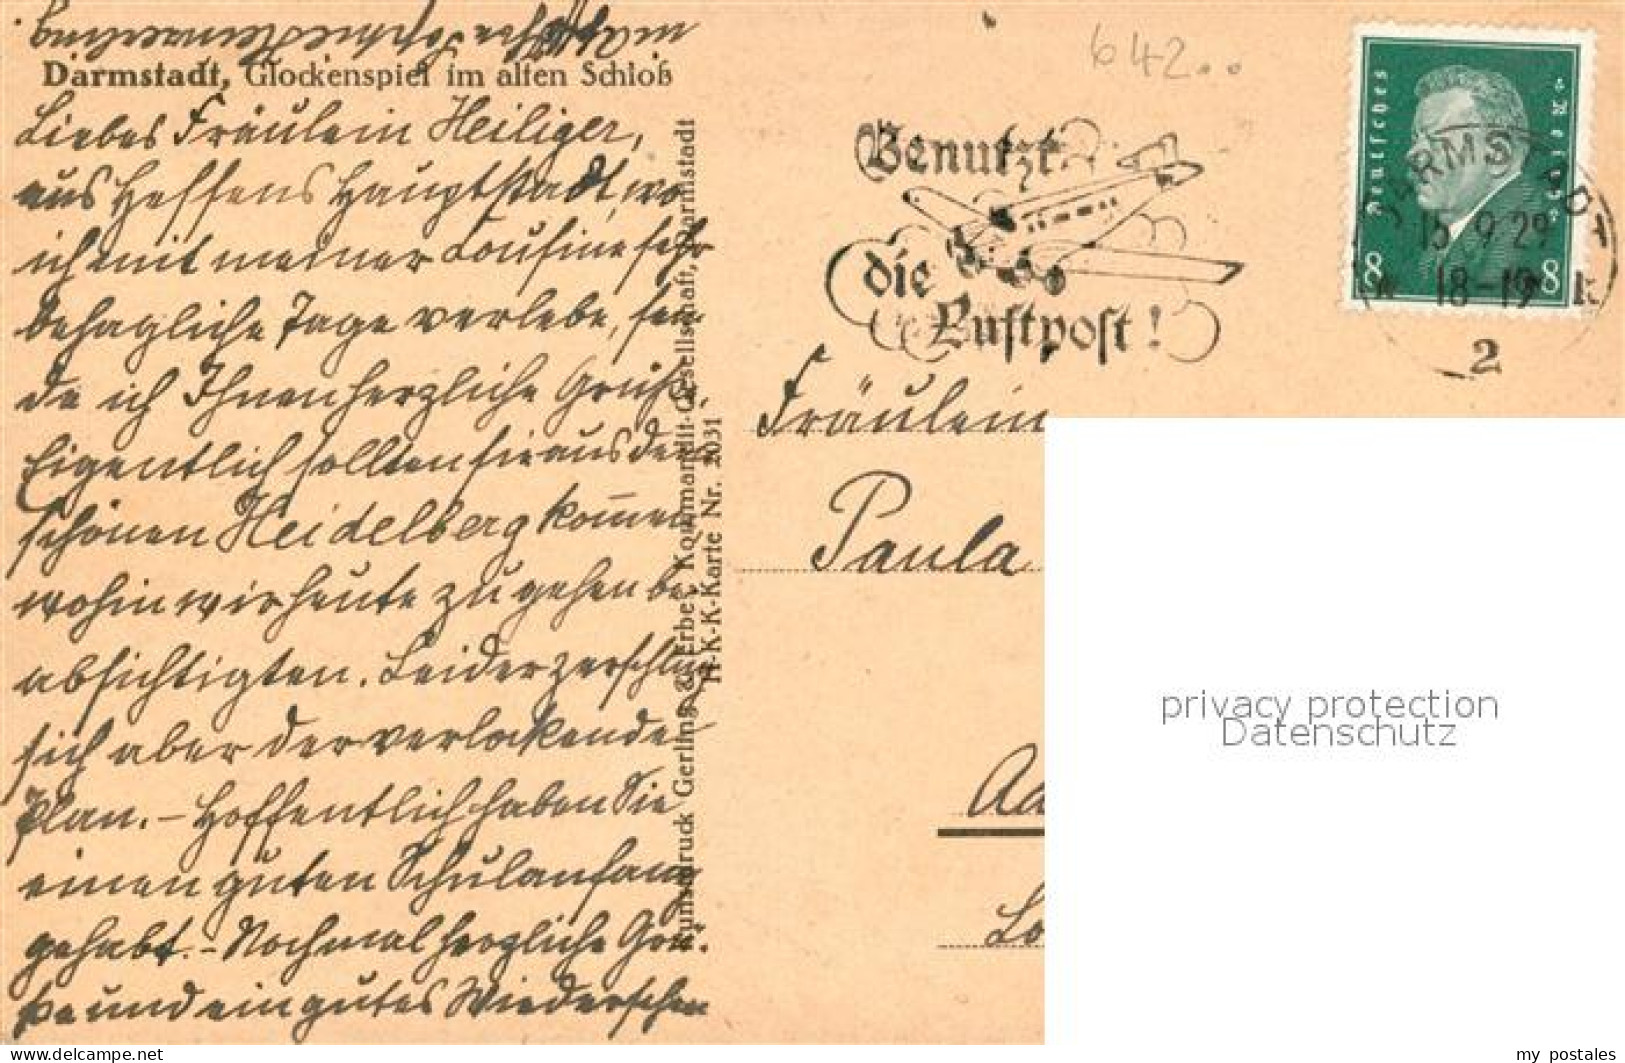 Darmstadt, Glockenspiel im alten Schloß
Liebes Fräulein Heiliger,
aus Hessens Hauptstadt, wo
ich mit meiner Cousine sehr
behagliche Tage verlebe, sen-
de ich Ihnen herzliche Grüße.
Eigentlich sollten sie aus dem
schönen Heidelberg kommen,
wohin wir heute zu gehen be-
absichtigten. Leider zerschlug
sich aber der verlockende
Plan. – Hoffentlich haben Sie
einen guten Schulanfang
gehabt. – Nochmal herzliche Grü-
ße und ein gutes Wiedersehen
Kunstdruck Gerling & Erbe, Kommandit-Gesellschaft, Darmstadt
H-K-K-Karte Nr. 2031
642..
Benutzt
die
Luftpost!
Deutsches Reich
8 8
DARMSTADT
15.9.29
18-19
2
Fräulein
Paula
privacy protection
Datenschutz
my postales
www.delcampe.net